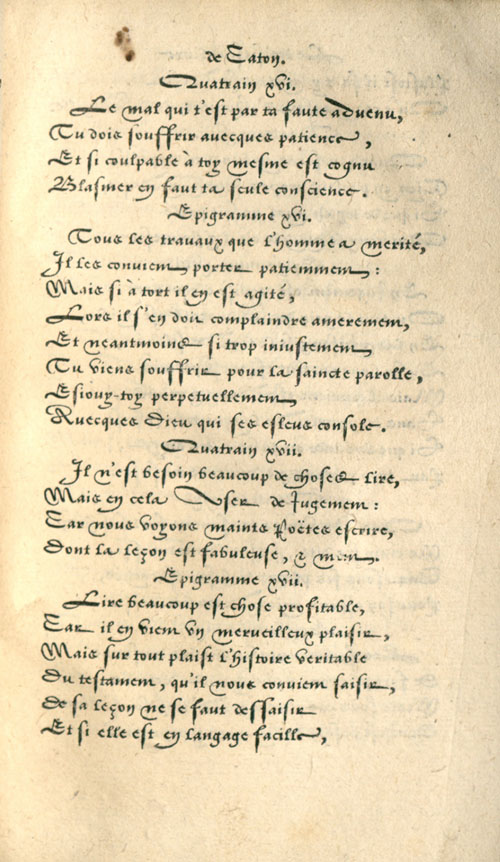 de Caton.
Quatrain xvi.
Le mal qui t'est par ta faute advenu,
Tu dois souffrir avecques patience,
Et si coulpable à toy mesme est cognu
Blasmer en faut ta seule conscience.
Epigramme xvi.
Tous les travaux que l'homme a merité,
Il les convient porter patiemment:
Mais si à tort il en est agité,
Lors il s'en doit complaindre amerement,
Et neantmoins si trop iniustement
Tu viens souffrir pour la saincte parolle,
Esiouy-toy perpetuellement
Avecques Dieu qui ses esleus console.
Quatrain xvii.
Il n'est besoin beaucoup de choses lire,
Mais en cela User de Jugement:
Car nous voyons maints Poëtes escrire,
Dont la leçon est fabuleuse, & ment.
Epigramme xvii.
Lire beaucoup est chose profitable,
Car il en vient un merveilleux plaisir,
Mais sur tout plaist l'histoire veritable
Du testament, qu'il nous convient saisir,
De sa leçon ne se faut dessaisir
Et si elle est en langage facille,